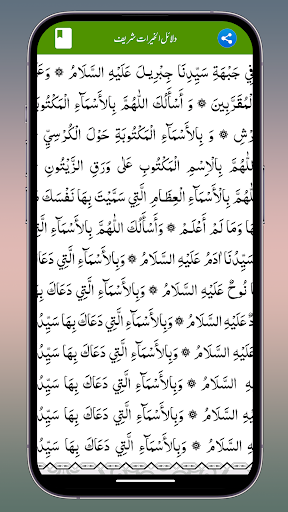 دلائل الخیرات شریف
فِي جَبْهَةِ سَيِّدِنَا جِبْرِيلَ عَلَيْهِ السَّلَامُ ۞
الْمُقَرَّبِينَ ۞ وَ أَسْأَلُكَ اللّٰهُمَّ بِالْأَسْمَاءِ الْمَكْتُوبَةِ
۞ وَ بِالْأَسْمَاءِ الْمَكْتُوبَةِ حَوْلَ الْكُرْسِيِّ
اللّٰهُمَّ بِالْاِسْمِ الْمَكْتُوبِ عَلٰى وَرَقِ الزَّيْتُونِ
اللّٰهُمَّ بِالْأَسْمَاءِ الْعِظَامِ الَّتِي سَمَّيْتَ بِهَا نَفْسَكَ
وَمَا لَمْ أَعْلَمْ ۞ وَأَسْأَلُكَ اللّٰهُمَّ بِالْأَسْمَاءِ
سَيِّدُنَا اٰدَمُ عَلَيْهِ السَّلَامُ ۞ وَبِالْأَسْمَاءِ الَّتِي دَعَاكَ
نُوحٌ عَلَيْهِ السَّلَامُ ۞ وَبِالْأَسْمَاءِ الَّتِي دَعَاكَ بِهَا
عَلَيْهِ السَّلَامُ ۞ وَبِالْأَسْمَاءِ الَّتِي دَعَاكَ بِهَا
عَلَيْهِ السَّلَامُ ۞ وَبِالْأَسْمَاءِ الَّتِي دَعَاكَ بِهَا
السَّلَامُ ۞ وَبِالْأَسْمَاءِ الَّتِي دَعَاكَ بِهَا
عَلَيْهِ السَّلَامُ ۞ وَبِالْأَسْمَاءِ الَّتِي دَعَاكَ بِهَا